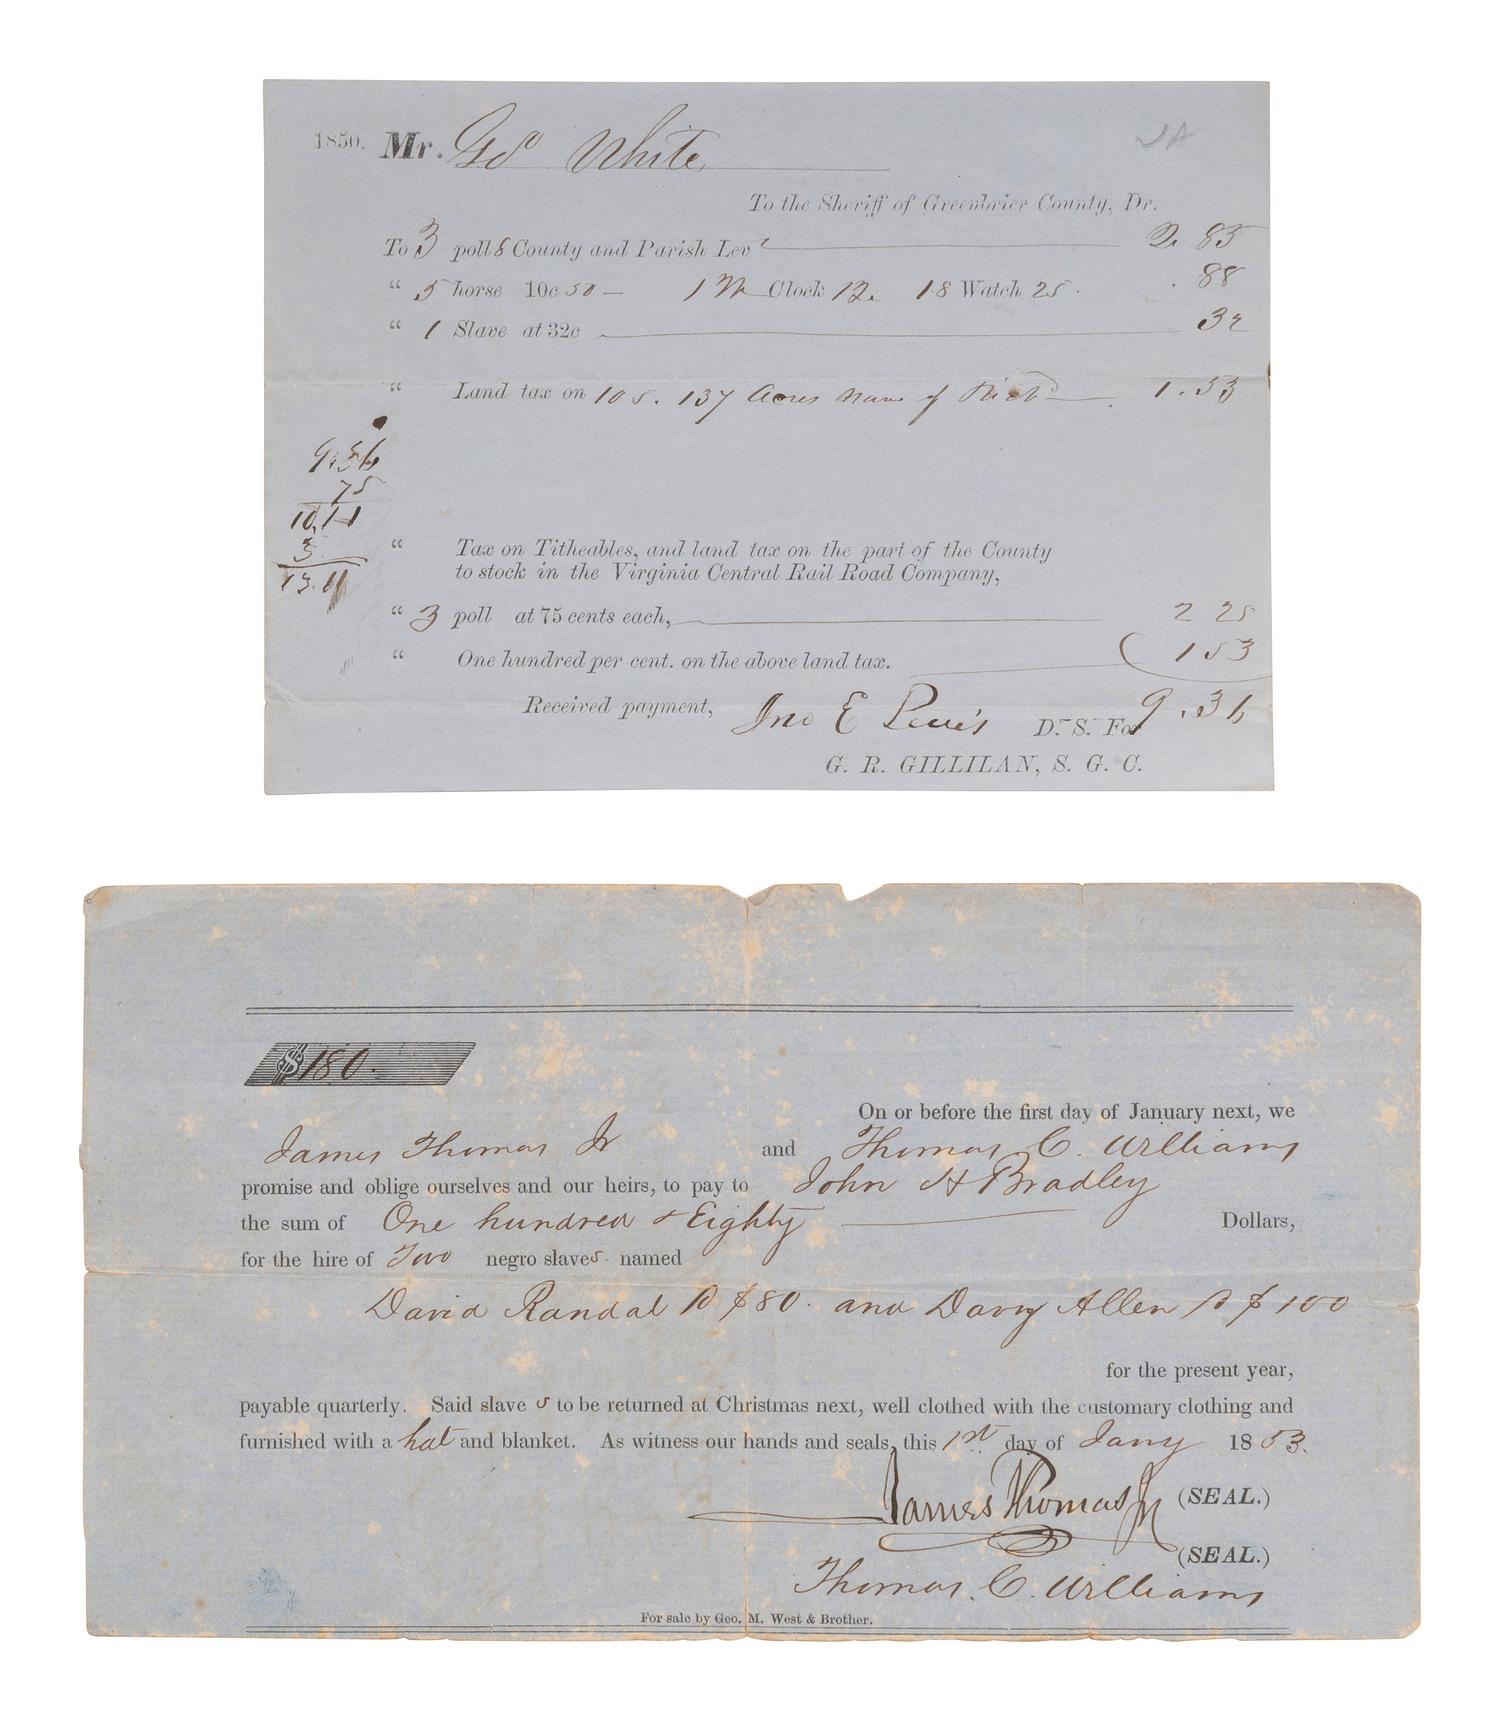 1850. Mr. Geo White
VA
To the Sheriff of Greenbrier County, Dr.
To 3 polls County and Parish Lev 2. 85
" 5 horse 10c 50 — 1 M Clock 12. 1 S Watch 25. .88
" 1 Slave at 32c 32
" Land tax on 105. 137 Acres name of Rich^d 1.53
9.36
75
10.11
3
13.11
" Tax on Titheables, and land tax on the part of the County
to stock in the Virginia Central Rail Road Company,
" 3 poll at 75 cents each, 2 25
" One hundred per cent. on the above land tax. 1 53
Received payment, Jno E Lewis D. S. For 9.36
G. R. GILLILAN, S. G. C.
$180.
On or before the first day of January next, we
James Thomas Jr and Thomas. C. Williams
promise and oblige ourselves and our heirs, to pay to John H Bradley
the sum of One hundred & Eighty Dollars,
for the hire of Two negro slaves named
David Randal @ $80. and Davy Allen @ $100
for the present year,
payable quarterly. Said slave s to be returned at Christmas next, well clothed with the customary clothing and
furnished with a hat and blanket. As witness our hands and seals, this 1st day of Jany 1853.
James Thomas Jr (SEAL.)
(SEAL.)
Thomas. C. Williams
For sale by Geo. M. West & Brother.